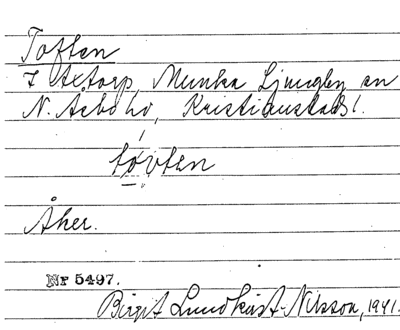 Toften
7 Axtorp, Munka Ljungby sn
N. Åsbo hd, Kristianstads l.
tovten
Åker.
Nr 5497.
Birgit Lundkvist-Nilsson, 1941.